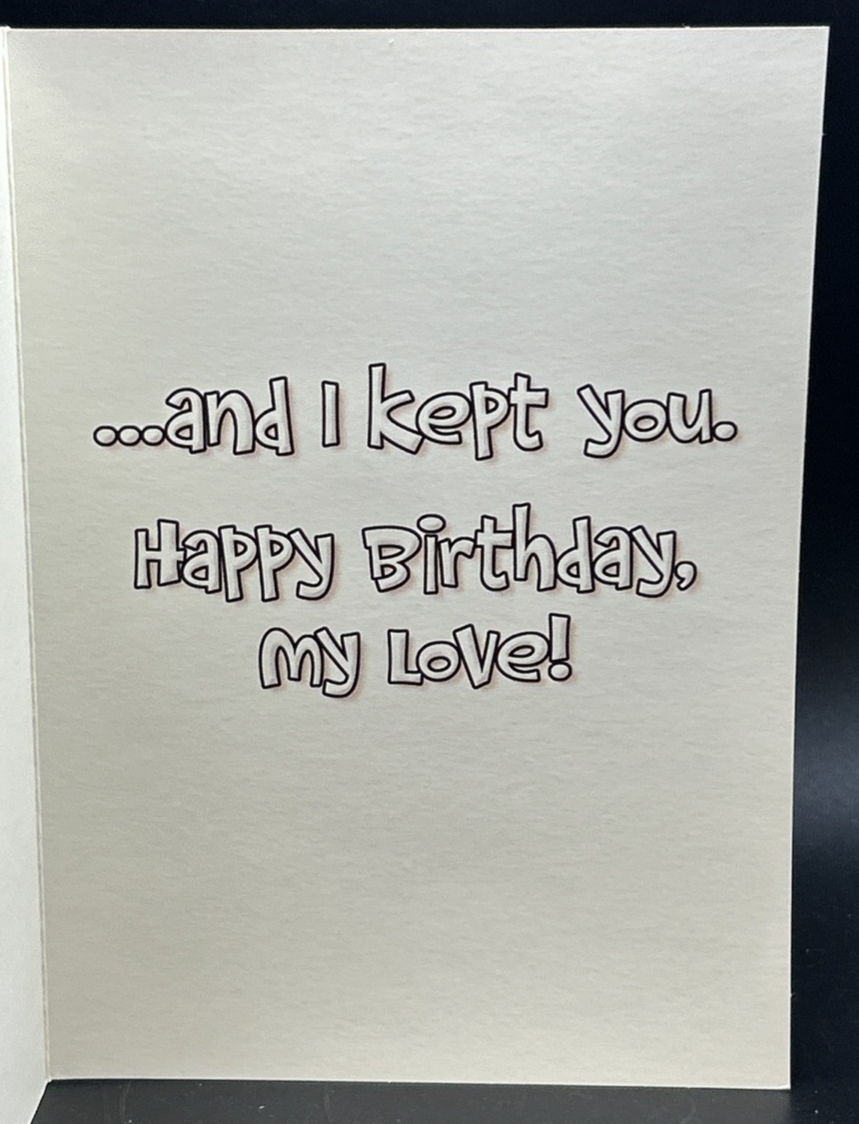 ...and I kept you.
Happy Birthday,
my Love!